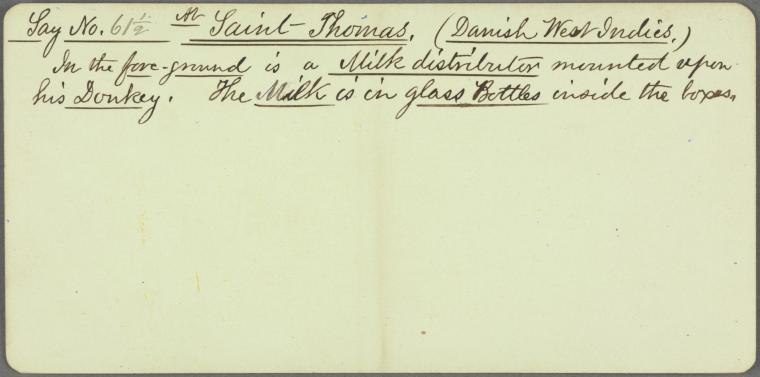 Say No. 61 1/2 At Saint-Thomas. (Danish West Indies.)
In the fore-ground is a Milk distributor mounted upon
his Donkey. The Milk is in glass Bottles inside the boxes.